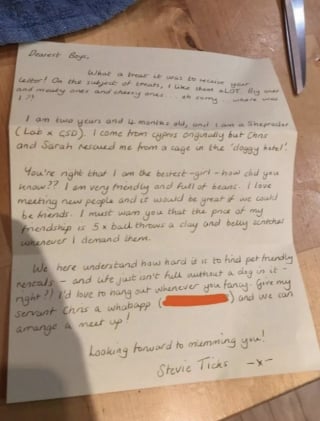 Dearest Boys,
What a treat it was to receive your
letter! On the subject of treats, I like them aLOT. Big ones
and meaty ones and cheesy ones... oh sorry... where was
I??
I am two years and 4 months old, and I am a Sheprador
(Lab x GSD). I come from Cyprus originally but Chris
and Sarah rescued me from a cage in the 'doggy hotel'.
You're right that I am the bestest-girl - how did you
know?? I am very friendly and full of beans. I love
meeting new people and it would be great if we could
be friends. I must warn you that the price of my
friendship is 5 x ball throws a day and belly scritches
whenever I demand them.
We here understand how hard it is to find pet friendly
rentals - and life just isn't full without a dog in it -
right?! I'd love to hang out whenever you fancy. Give my
servant Chris a whatsapp ( ) and we can
arrange a meet up!
Looking forward to meeting you!
Stevie Ticks -x-